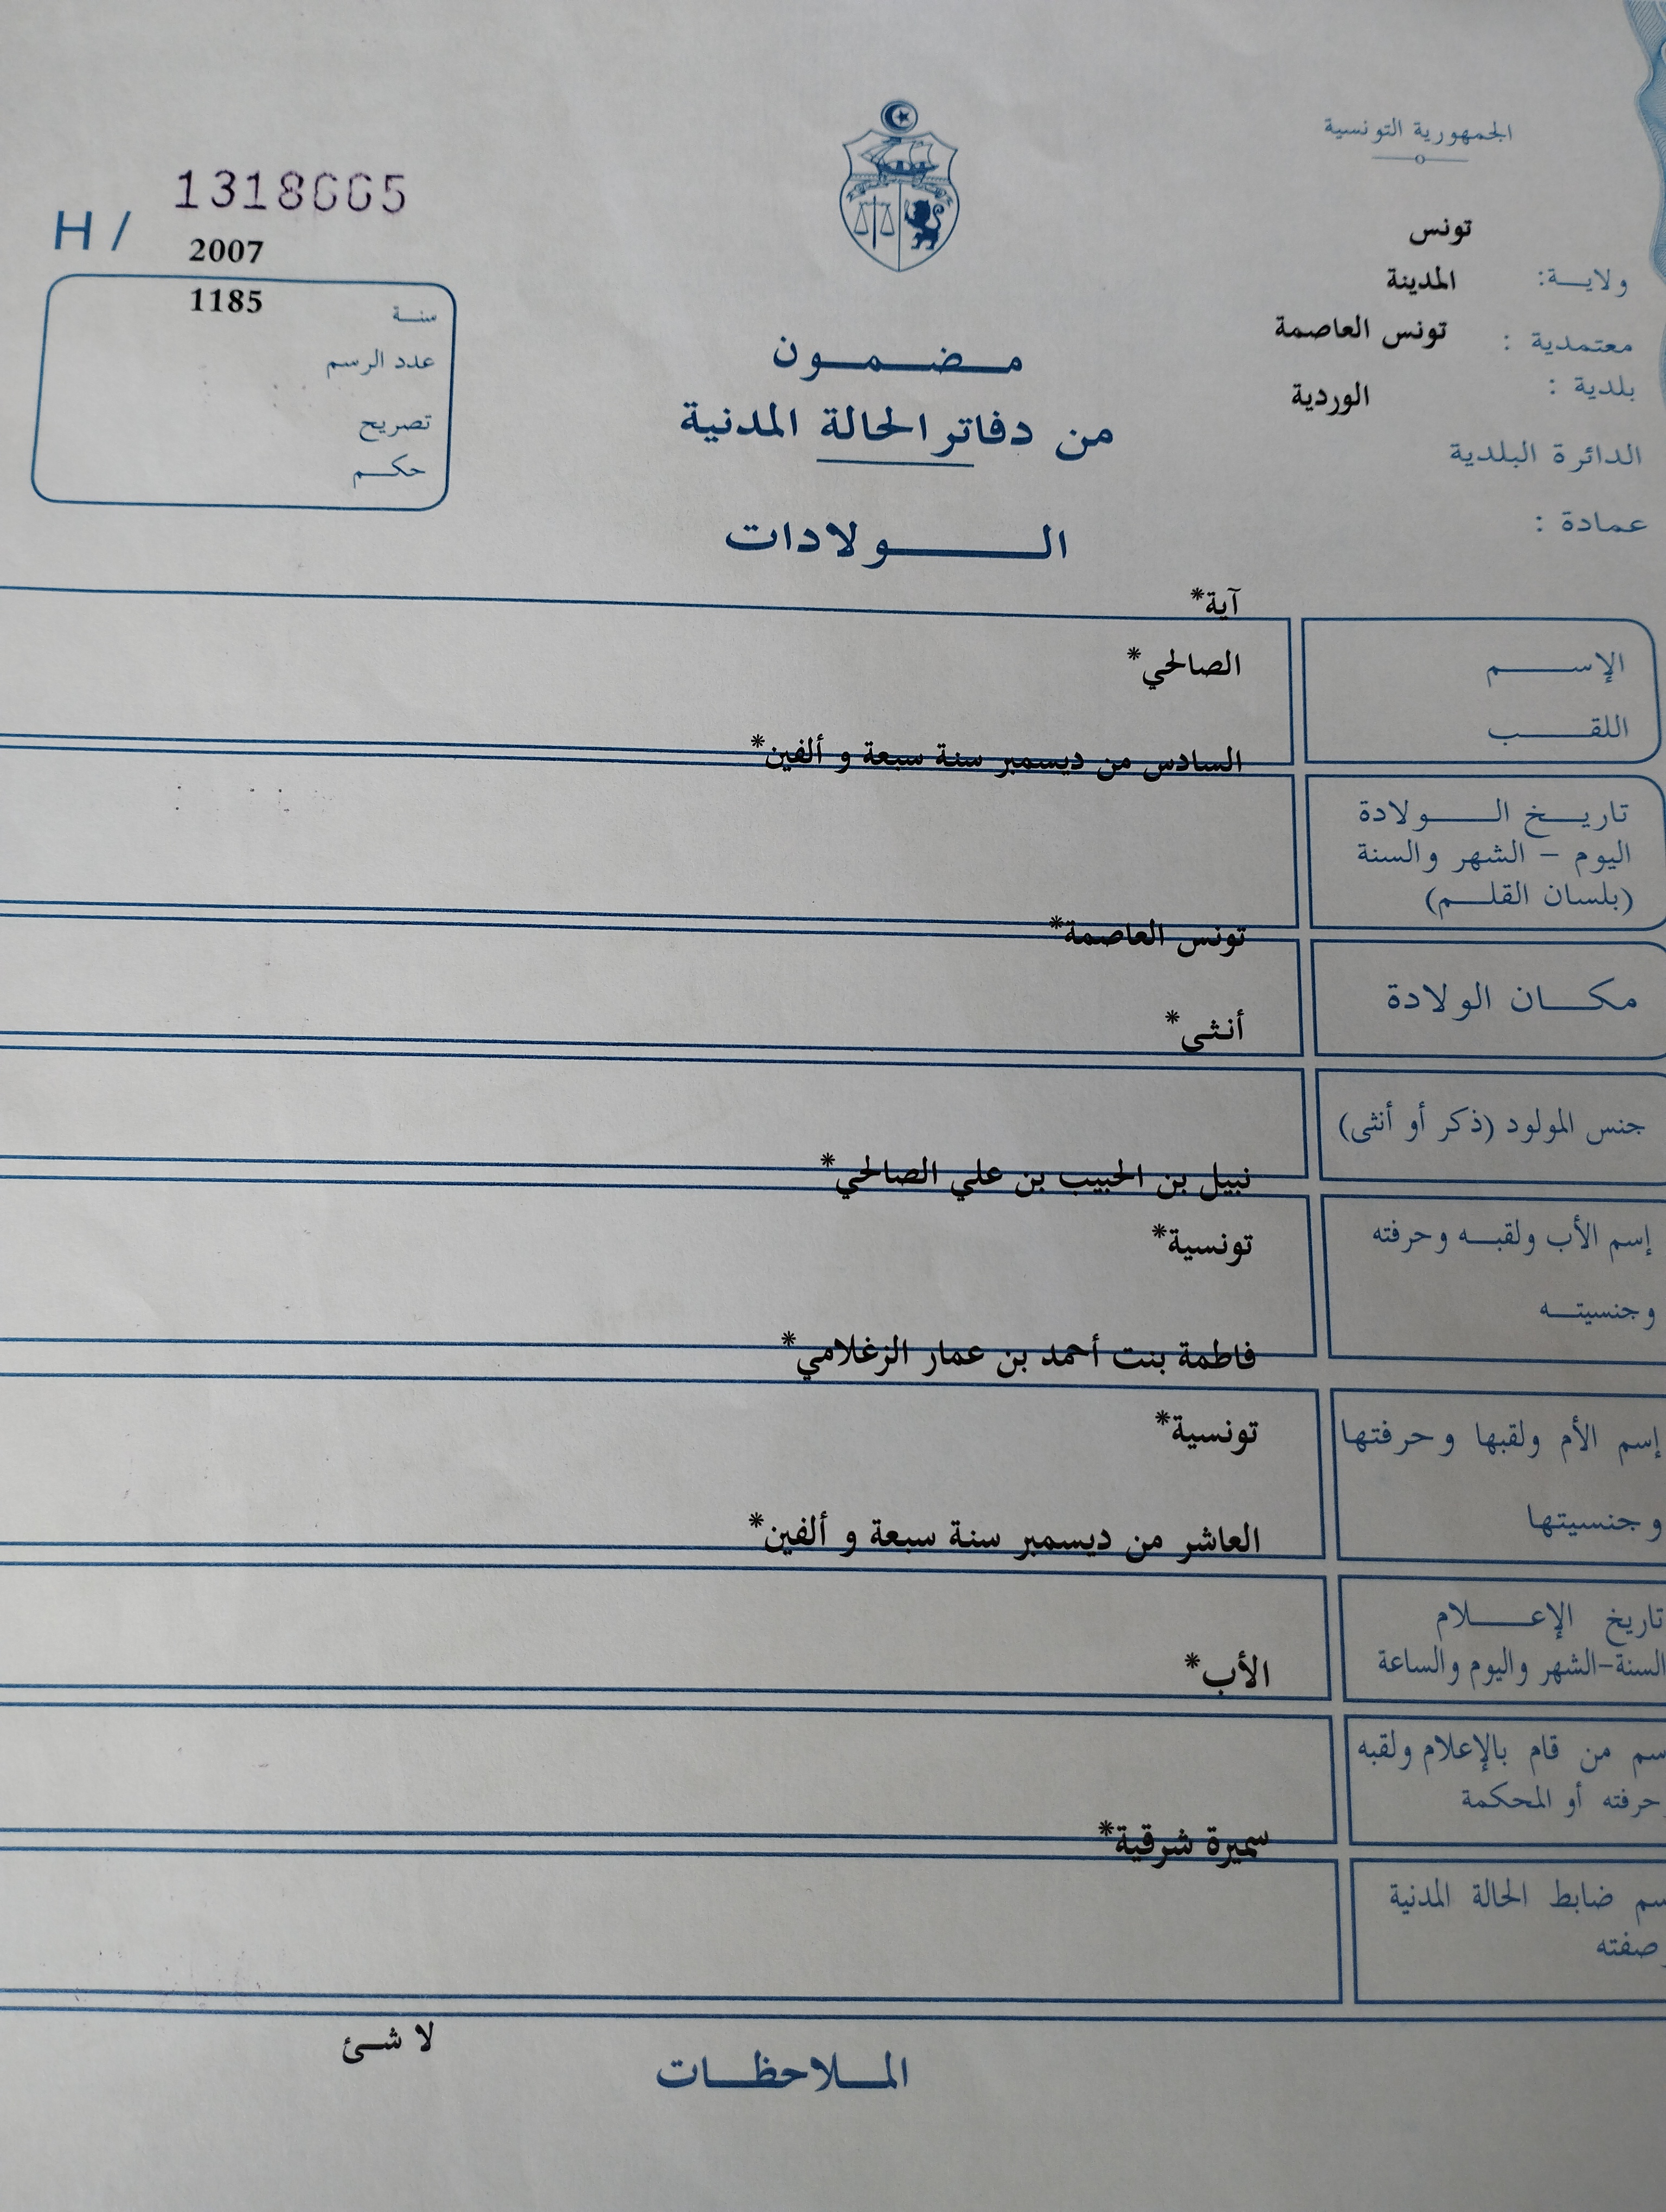 الجمهورية التونسية
ولاية: تونس
معتمدية : المدينة
بلدية : تونس العاصمة
الدائرة البلدية الوردية
عمادة :
H / 1318665
سنة 2007
عدد الرسم 1185
تصريح
حكم
مضمون
من دفاتر الحالة المدنية
الولادات
الإسم آية*
اللقب الصالحي*
تاريخ الولادة
اليوم - الشهر والسنة
(بلسان القلم)
السادس من ديسمبر سنة سبعة و ألفين*
مكان الولادة تونس العاصمة*
جنس المولود (ذكر أو أنثى) أنثى*
إسم الأب ولقبه وحرفته نبيل بن الحبيب بن علي الصالحي*
وجنسيته تونسية*
إسم الأم ولقبها وحرفتها فاطمة بنت أحمد بن عمار الزغلامي*
وجنسيتها تونسية*
تاريخ الإعلام
السنة-الشهر واليوم والساعة
العاشر من ديسمبر سنة سبعة و ألفين*
سم من قام بالإعلام ولقبه
حرفته أو المحكمة
الأب*
سم ضابط الحالة المدنية
صفته
سميرة شرقية*
الملاحظات
لا شئ